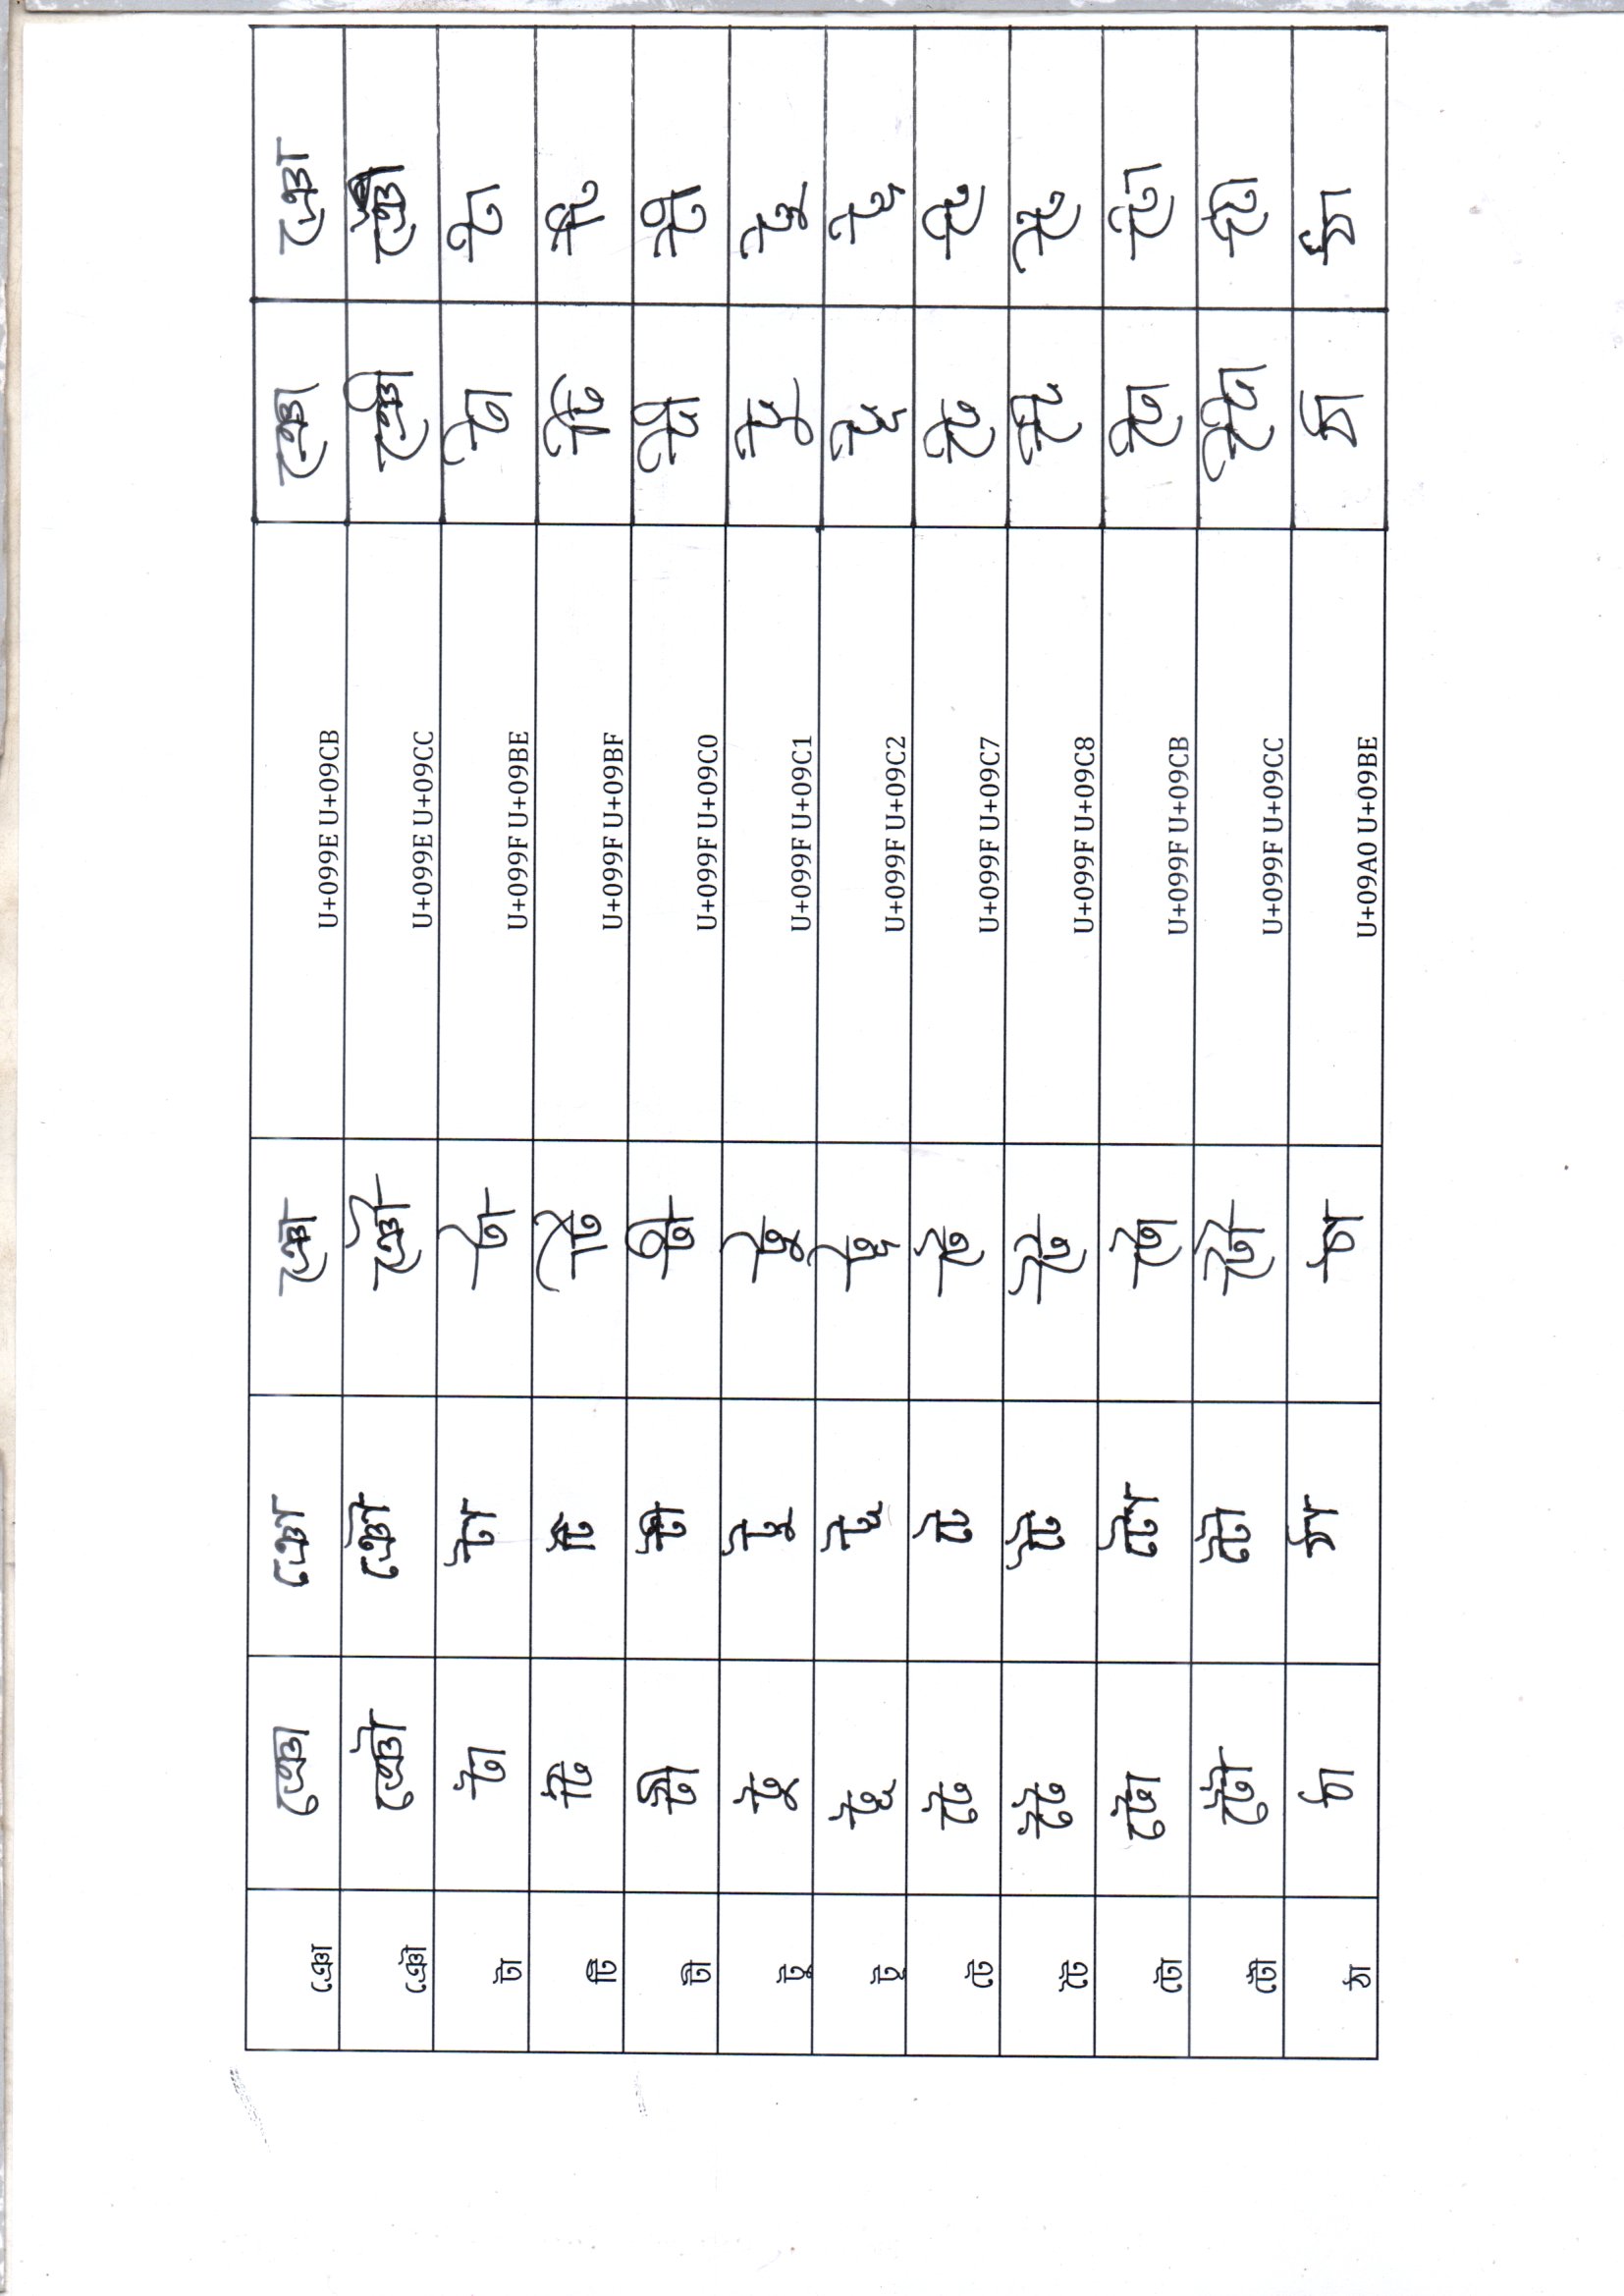 ঞো ঞো ঞো ঞো U+099E U+09CB ঞো ঞো
ঞৌ ঞৌ ঞৌ ঞৌ U+099E U+09CC ঞৌ ঞৌ
টা টা টা টা U+099F U+09BE টা টা
টি টি টি টি U+099F U+09BF টি টি
টী টী টী টী U+099F U+09C0 টী টী
টু টু টু টু U+099F U+09C1 টু টু
টূ টূ টূ টূ U+099F U+09C2 টূ টূ
টে টে টে টে U+099F U+09C7 টে টে
টৈ টৈ টৈ টৈ U+099F U+09C8 টৈ টৈ
টো টো টো টো U+099F U+09CB টো টো
টৌ টৌ টৌ টৌ U+099F U+09CC টৌ টৌ
ঠা ঠা ঠা ঠা U+09A0 U+09BE ঠা ঠা